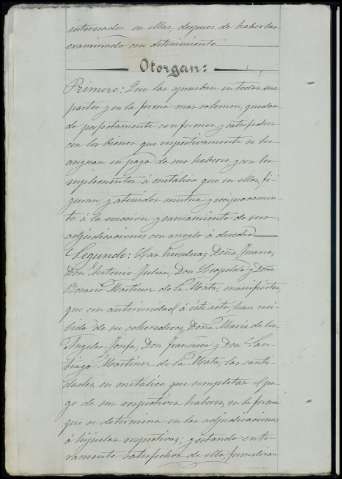 interesados en ellas, despues de haberlas
examinado con detenimiento
Otorgan:
Primero: Que las aprueban en todas sus
partes y en la forma mas solemne, quedan-
do perfectamente conformes y satisfechos
con los bienes que respectivamente se les
asignan en pago de sus haberes, y con los
suplementos á metálico que en ellas fi-
guran, y obligados mutua y reciprocamen-
te á la eviccion y saneamiento de sus
adjudicaciones con arreglo á derecho
Segundo: Los herederos Doña Juana,
Don Antonio Julian, Don Leopoldo y Doña
Rosario Martinez de la Mata, manifiestan
que con anterioridad á este acto, han reci-
bido de sus coherederos, Doña Maria de los
Angeles Josefa, Don Francisco y Don San-
tiago Martinez de la Mata, las canti-
dades en metálico que completan el pa-
go de sus respectivos haberes, en la forma
que se determina en las adjudicaciones
é hijuelas respectivas; y estando ente-
ramente satisfechos de ellas, formalizan